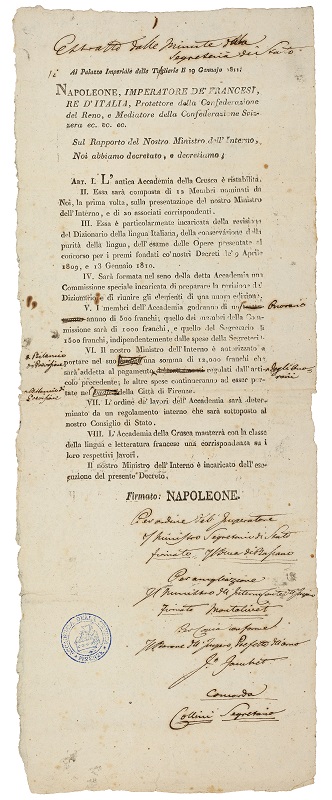 Estratto dalle Minute della
Segreteria di Stato
Al Palazzo Imperiale delle Tuglierie li 19 Gennajo 1811;
NAPOLEONE, IMPERATORE DE' FRANCESI,
RE D'ITALIA, Protettore della Confederazione
del Reno, e Mediatore della Confederazione Sviz-
zera ec. ec. ec.
Sul Rapporto del Nostro Ministro dell'Interno,
Noi abbiamo decretato, e decretiamo;
ART. I. L'antica Accademia della Crusca è ristabilita.
II. Essa sarà composta di 12 Membri nominati da
Noi, la prima volta, sulla presentazione del nostro Ministro
dell'Interno, e di 20 associati corrispondenti.
III. Essa è particolarmente incaricata della revisione
del Dizionario della lingua Italiana, della conservazione della
purità della lingua, dell'esame delle Opere presentate al
concorso per i premj fondati co' nostri Decreti de' 9 Aprile
1809, e 13 Gennajo 1810.
IV. Sarà formata nel seno della detta Accademia una
Commissione speciale incaricata di preparare la revisione del
Dizionario e di riunire gli elementi di una nuova edizione.
V. I membri dell'Accademia godranno di un Onorario
annuo di 500 franchi; quello dei membri della Com-
missione sarà di 1000 franchi, e quello del Segretario di
1500 franchi, indipendentemente dalle spese della Segreteria.
VI. Il nostro Ministro dell'Interno è autorizzato a
portare nel suo una somma di 12,000 franchi che
sarà addetta al pagamento regolati dall'arti-
colo precedente; le altre spese continueranno ad esser por-
tate nel della Città di Firenze.
VII. L'ordine de' lavori dell'Accademia sarà deter-
minato da un regolamento interno che sarà sottoposto al
nostro Consiglio di Stato.
VIII. L'Accademia della Crusca manterrà con la classe
della lingua e letteratura francese una corrispondenza su i
loro respettivi lavori.
Il nostro Ministro dell'Interno è incaricato dell'ese-
cuzione del presente Decreto.
Firmato: NAPOLEONE.
Per ordine dell'Imperatore
Il Ministro Segretario di Stato
firmato Il Duca di Bassano
Per ampliazione
Il Ministro dell'Interno
firmato Montalivet
Per Copia conforme
Il Barone dell'Impero, Prefetto
Concorda
Collini Segretario